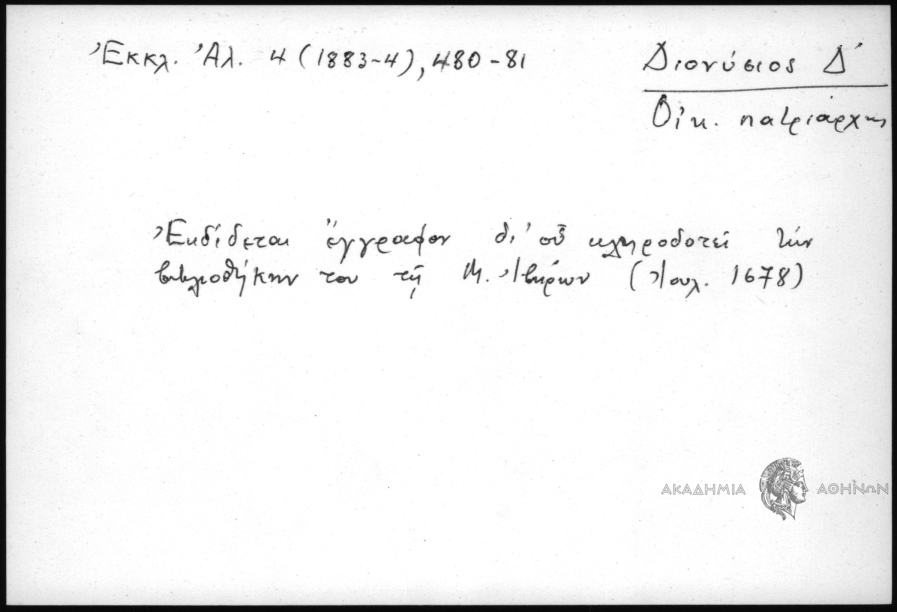 Ἐκκλ. Ἀλ. 4 (1883-4), 480-81
Διονύσιος Δ΄
Οἰκ. πατριάρχης
Ἐκδίδεται ἔγγραφον δι' οὗ κληροδοτεῖ τὴν
βιβλιοθήκην του τῇ Μ. Ἰβήρων (Ἰουλ. 1678)
ΑΚΑΔΗΜΙΑ ΑΘΗΝΩΝ